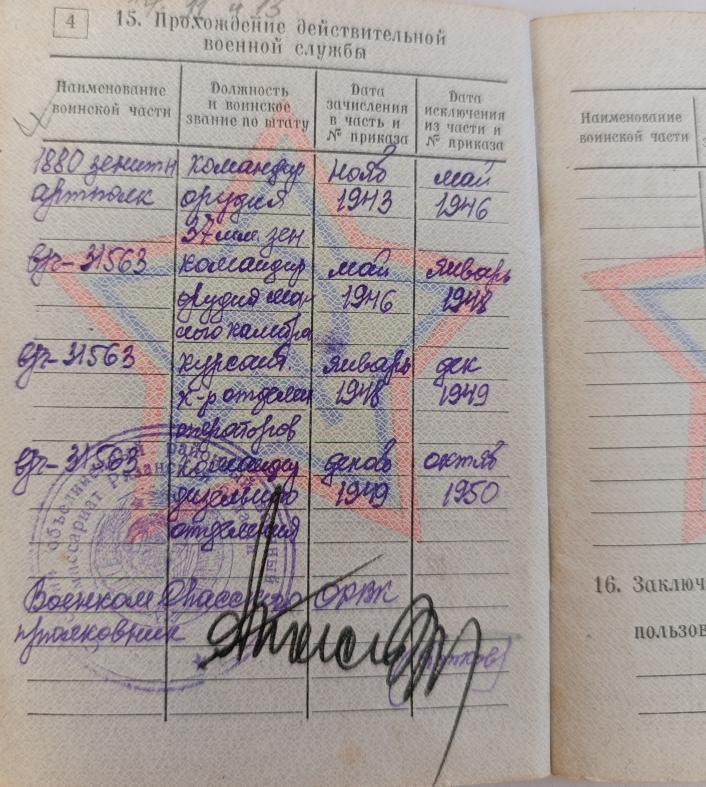 4
15. Прохождение действительной
военной службы
Наименование
воинской части
Должность
и воинское
звание по штату
Дата
зачисления
в часть и
№ приказа
Дата
исключения
из части и
№ приказа
1880 зенитн командир нояб май
артполк орудия 1943 1946
37 мм. зен
вч-31563 командир май январь
орудия мал 1946 1948
ого калибра
вч-31563 курсант январь дек
к-р отделен 1948 1949
операторов
вч-31563 командир декаб октяб
дизельного 1949 1950
отделения
Военком Спасского ОРВК
полковник
объединённый
районный
Наименование
воинской части
16. Заключ
пользов